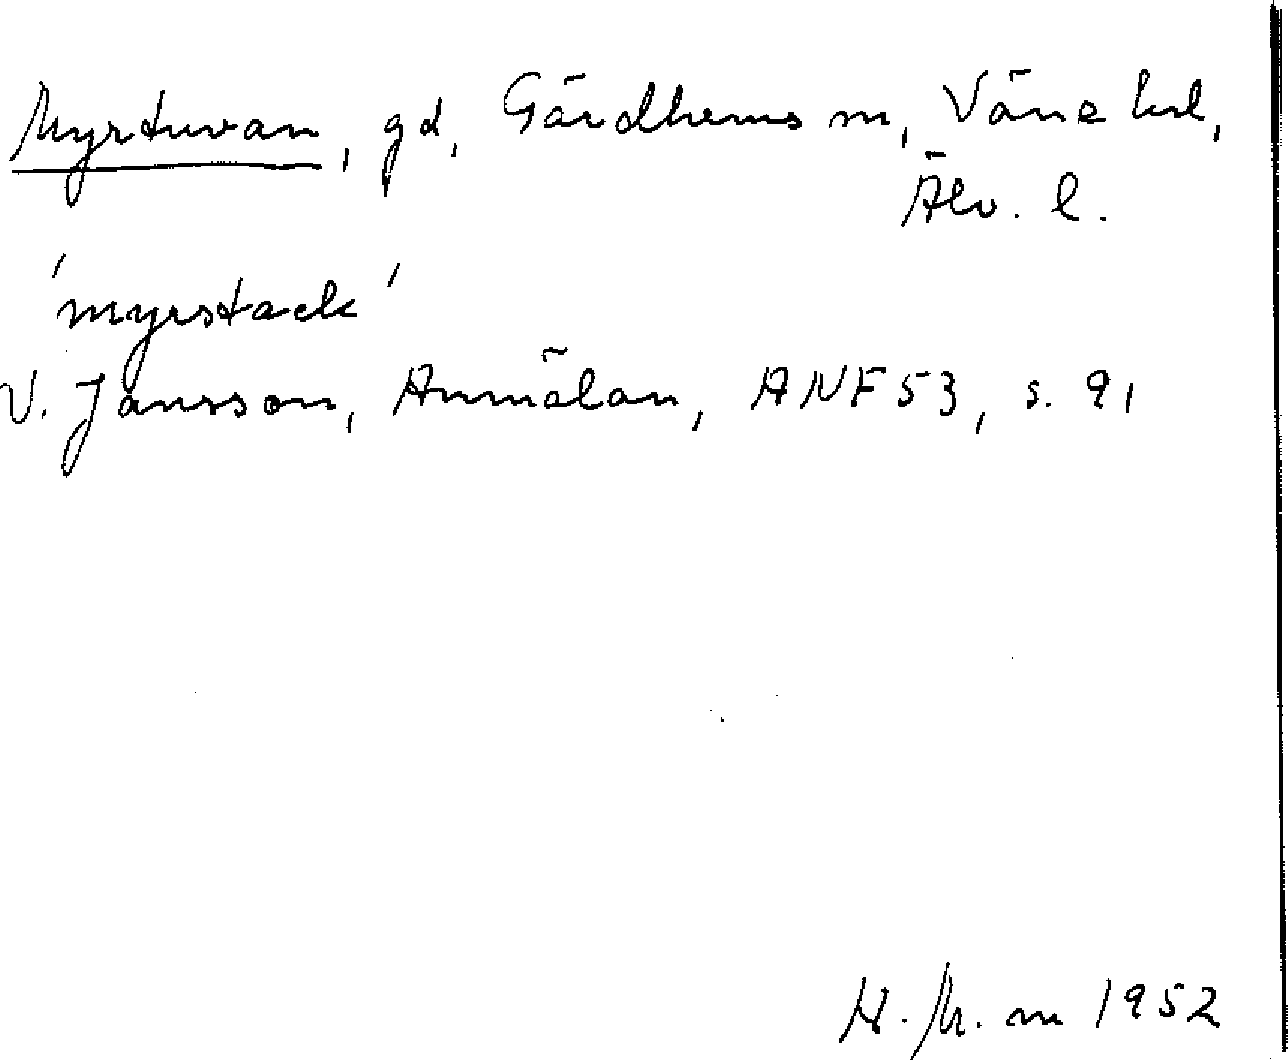 Myrtuvan, gd, Gärdhems sn, Väne hd,
Älv. l.
'myrstack'
V. Jansson, Anmälan, ANF 53, s. 91
H. M. 1952